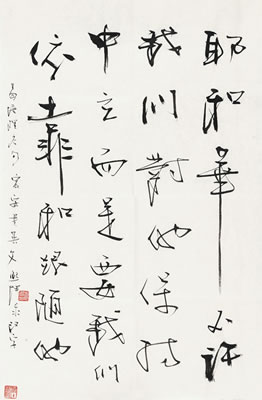 耶和華不許
我們對他保持
中立而是要我們
依靠和跟隨他